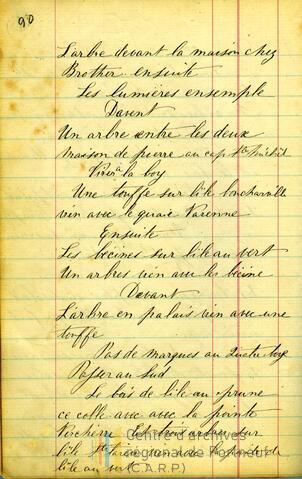 90
L'arbre devant la maison chez
Brother ensuite
Les lumières ensemble
Davent
Un arbre entre les deux
maison de pierre au cap St Michel
Virer a la boy
Une touffe sur l'ile boucharville
vien avec le quaie Varenne
Ensuite
Les bécines sur l'ile au vert
Un arbres vien avec les bécine
Devant
L'arbre en palais vien avec une
touffe
Pas de marques au boye
Passer au Sud
Le bois de l'ile au prune
ce colle avec avec la pointe
Verchère Et trois arbres sur
l'ile
l'ile au vert
Centre d'archives
régionale Portneuf
(C.A.R.P.)